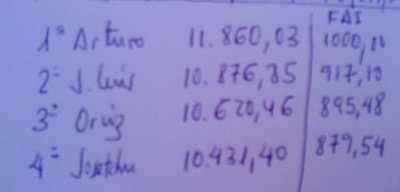 FAI
1ª Arturo 11.860,03 1000,00
2ª J. Luis 10.876,35 917,10
3ª Oruiz 10.620,46 895,48
4ª 10.431,40 879,54